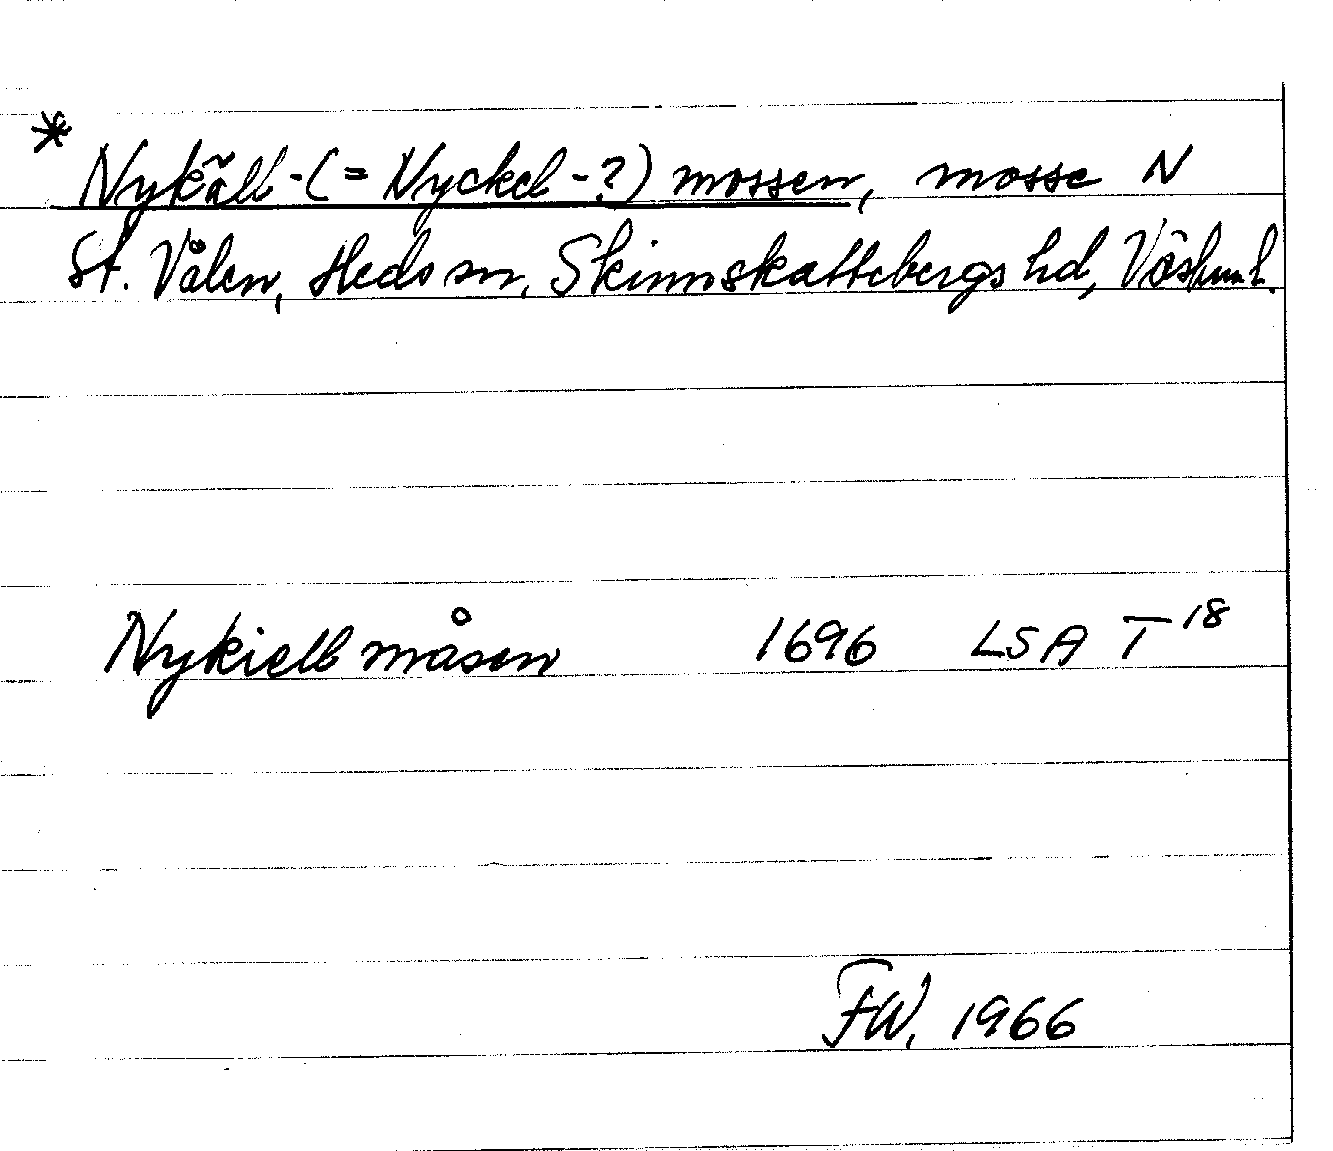 * Nykäll-(= Nyckel-?) mossen, mosse N
St. Vålen, Heds sn, Skinnskattebergs hd, Västml.
Nykiell måsen 1696 LSA T 18
FW, 1966